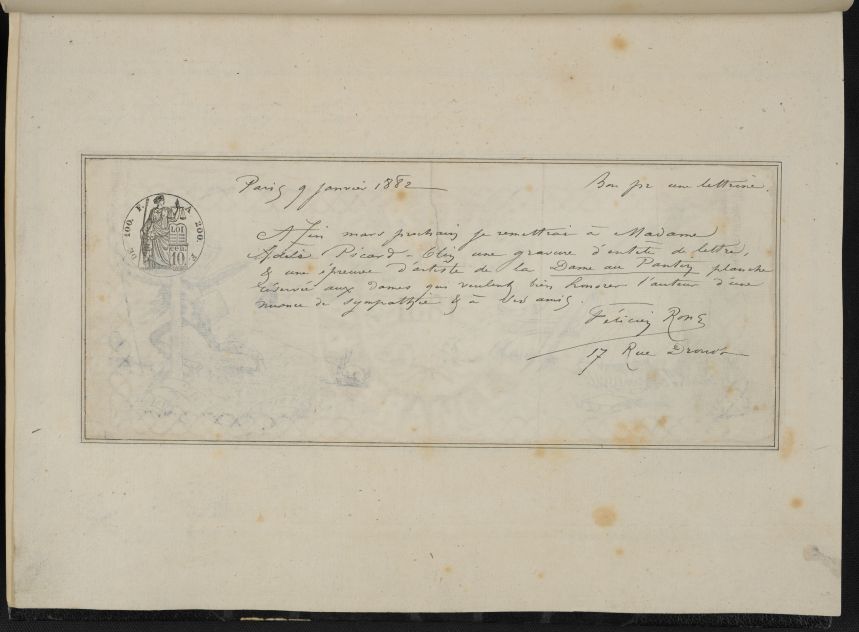 Paris 9 Janvier 1882
Bon pr une lettrine.
DE 100. F. A 200. F.
LOI
CEN.
10
A fin mars prochain je remettrai à Madame
Adèle Picard-Olin une gravure d'entête de lettre,
& une épreuve d'artiste de la Dame au Pantin planche
réservée aux dames qui veulent bien honorer l'auteur d'une
nuance de sympathie & à ses amis.
Félicien Rops
17 Rue Drouot